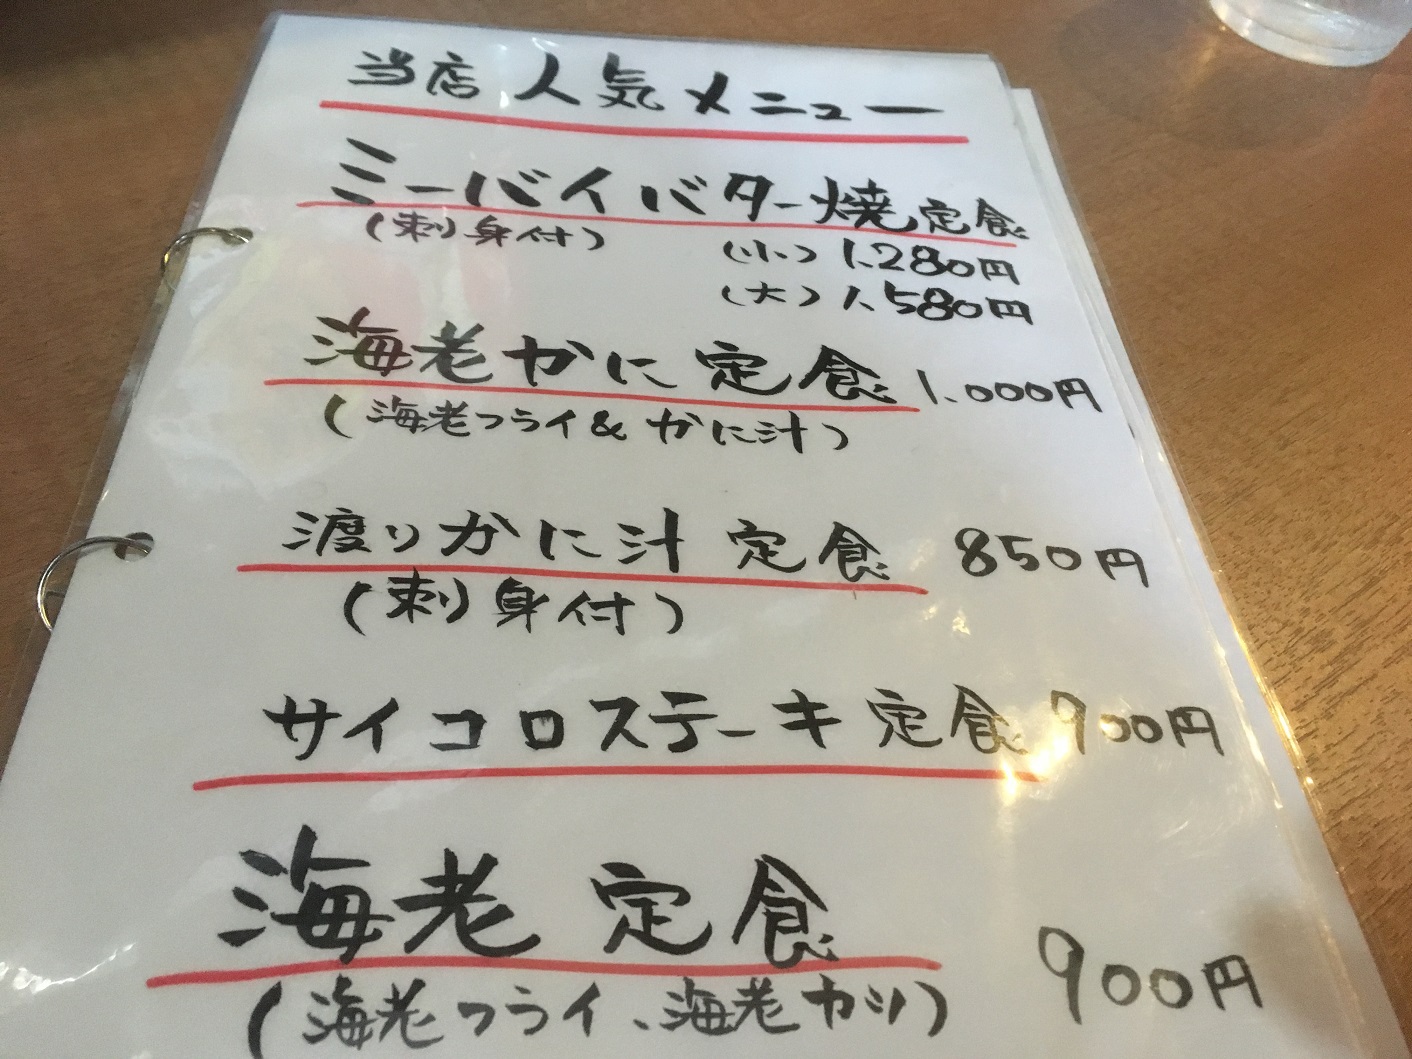 当店人気メニュー
ミーバイバター焼定食
(刺身付) (小) 1.280円
(大) 1.580円
海老かに定食 1.000円
(海老フライ&かに汁)
渡りかに汁定食 850円
(刺身付)
サイコロステーキ定食 900円
海老定食 900円
(海老フライ、海老カツ)